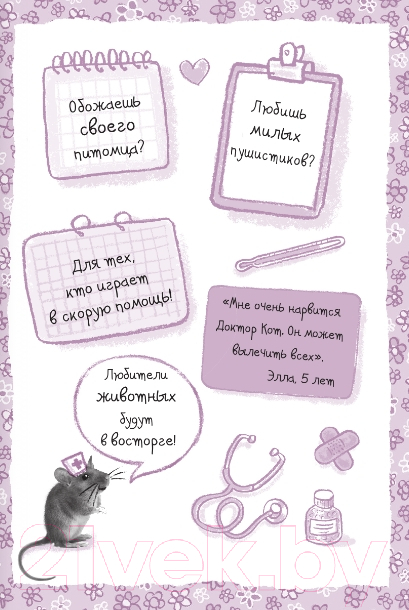 Обожаешь
своего
питомца?
Любишь
милых
пушистиков?
Для тех,
кто играет
в скорую помощь!
«Мне очень нарвится
Доктор Кот. Он может
вылечить всех».
Элла, 5 лет
Любители
животных
будут
в восторге!
21vek.by